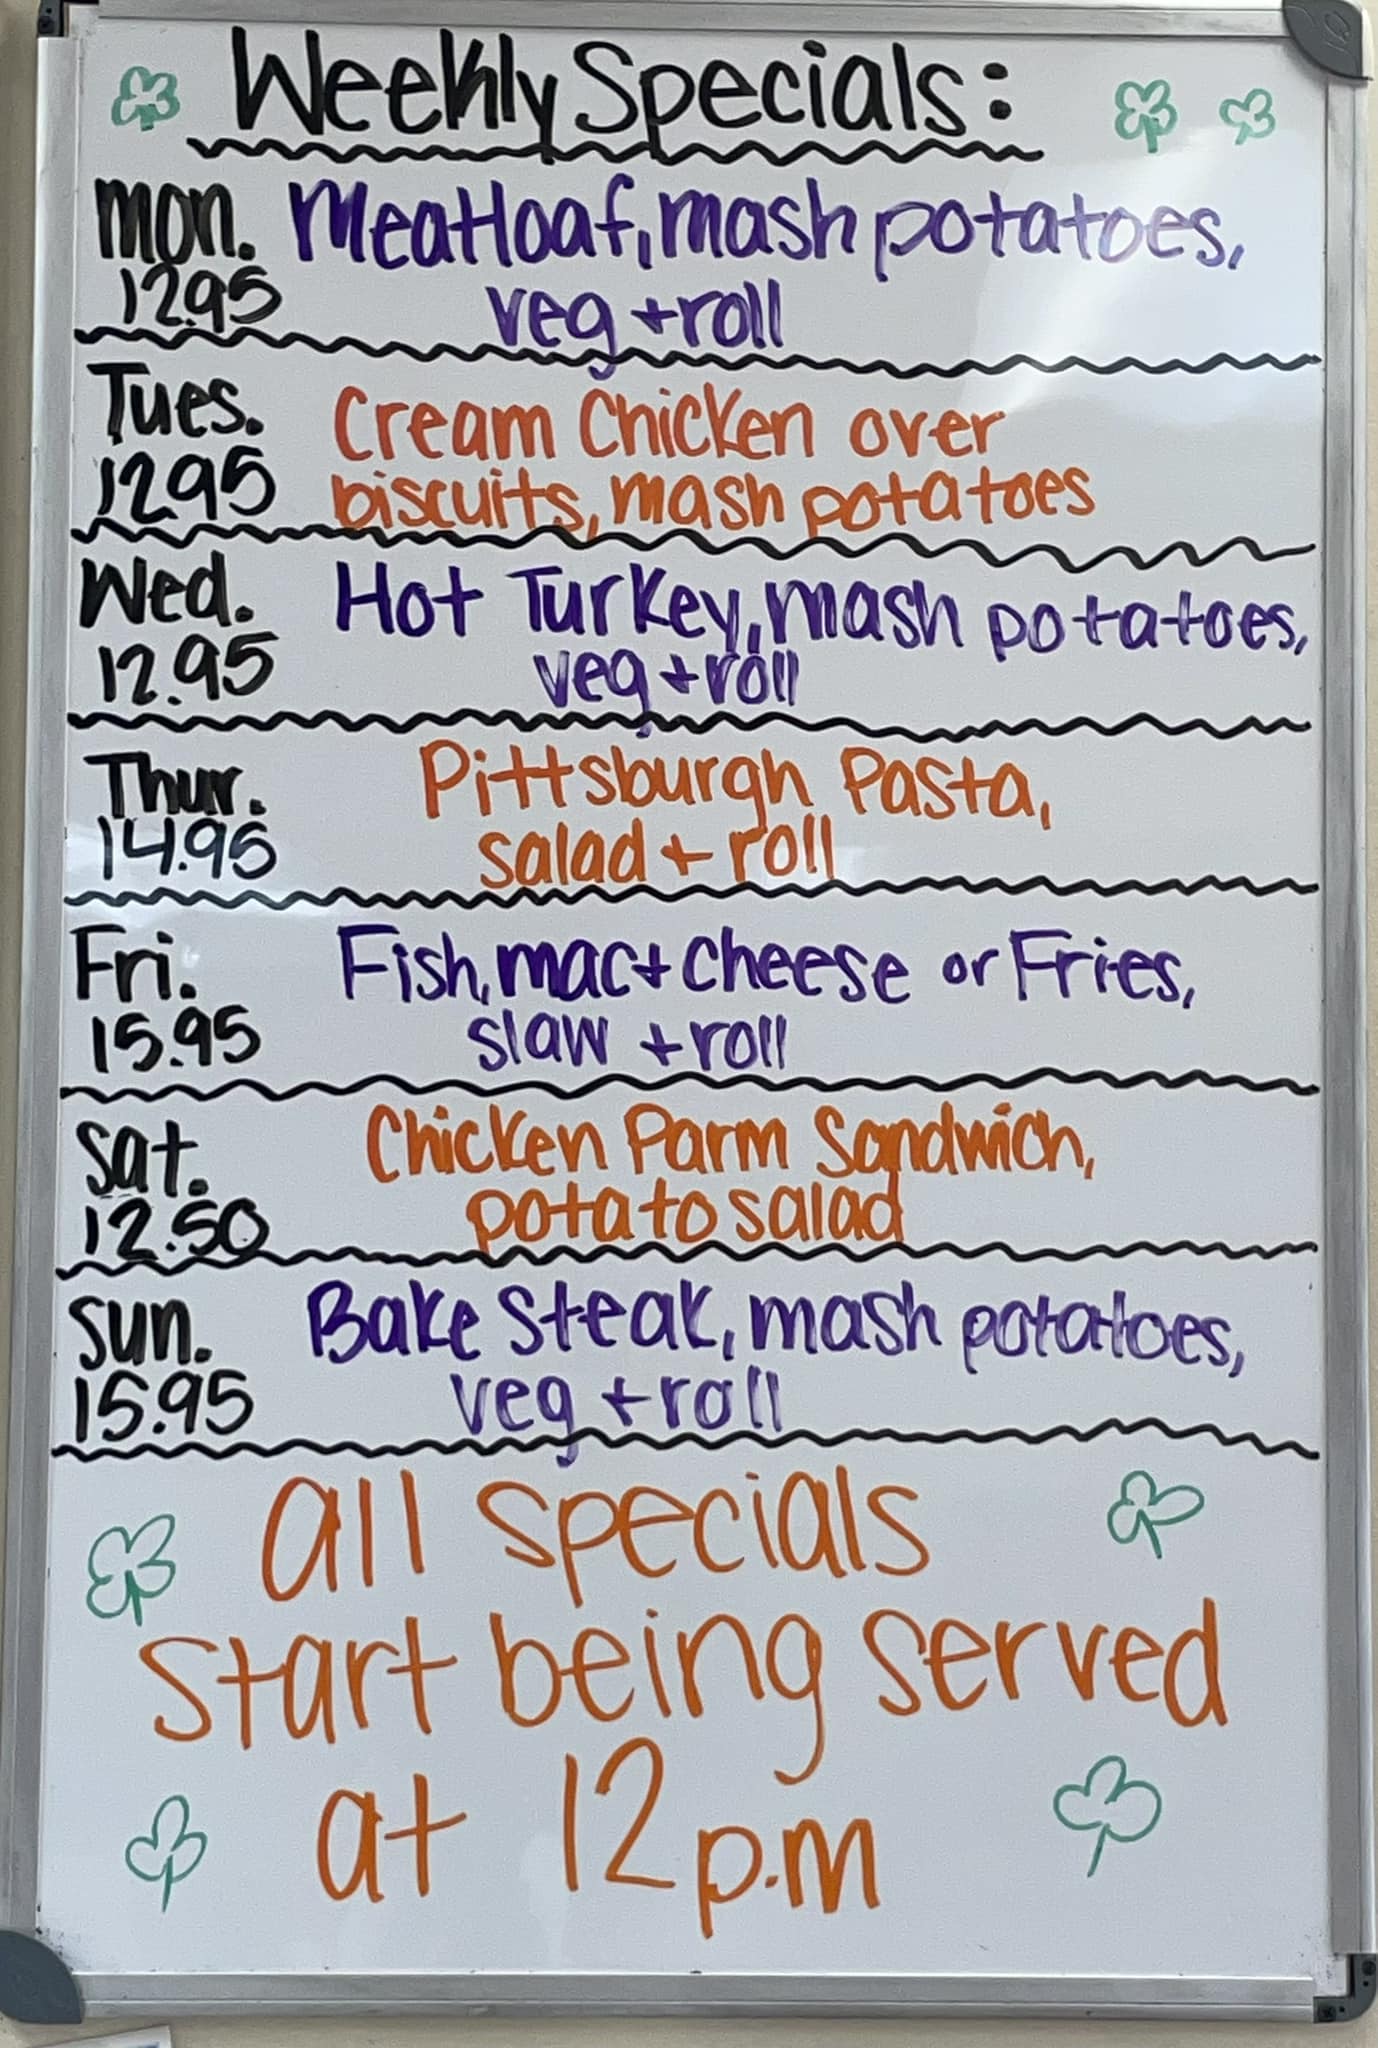 Weekly Specials:
Mon. Meatloaf, mash potatoes,
12.95 veg + roll
Tues. Cream Chicken over
12.95 biscuits, mash potatoes
Wed. Hot Turkey, mash potatoes,
12.95 veg + roll
Thur. Pittsburgh Pasta,
14.95 salad + roll
Fri. Fish, mac + cheese or Fries,
15.95 slaw + roll
Sat. Chicken Parm Sandwich,
12.50 potato salad
Sun. Bake Steak, mash potatoes,
15.95 veg + roll
all specials
start being served
at 12 p.m